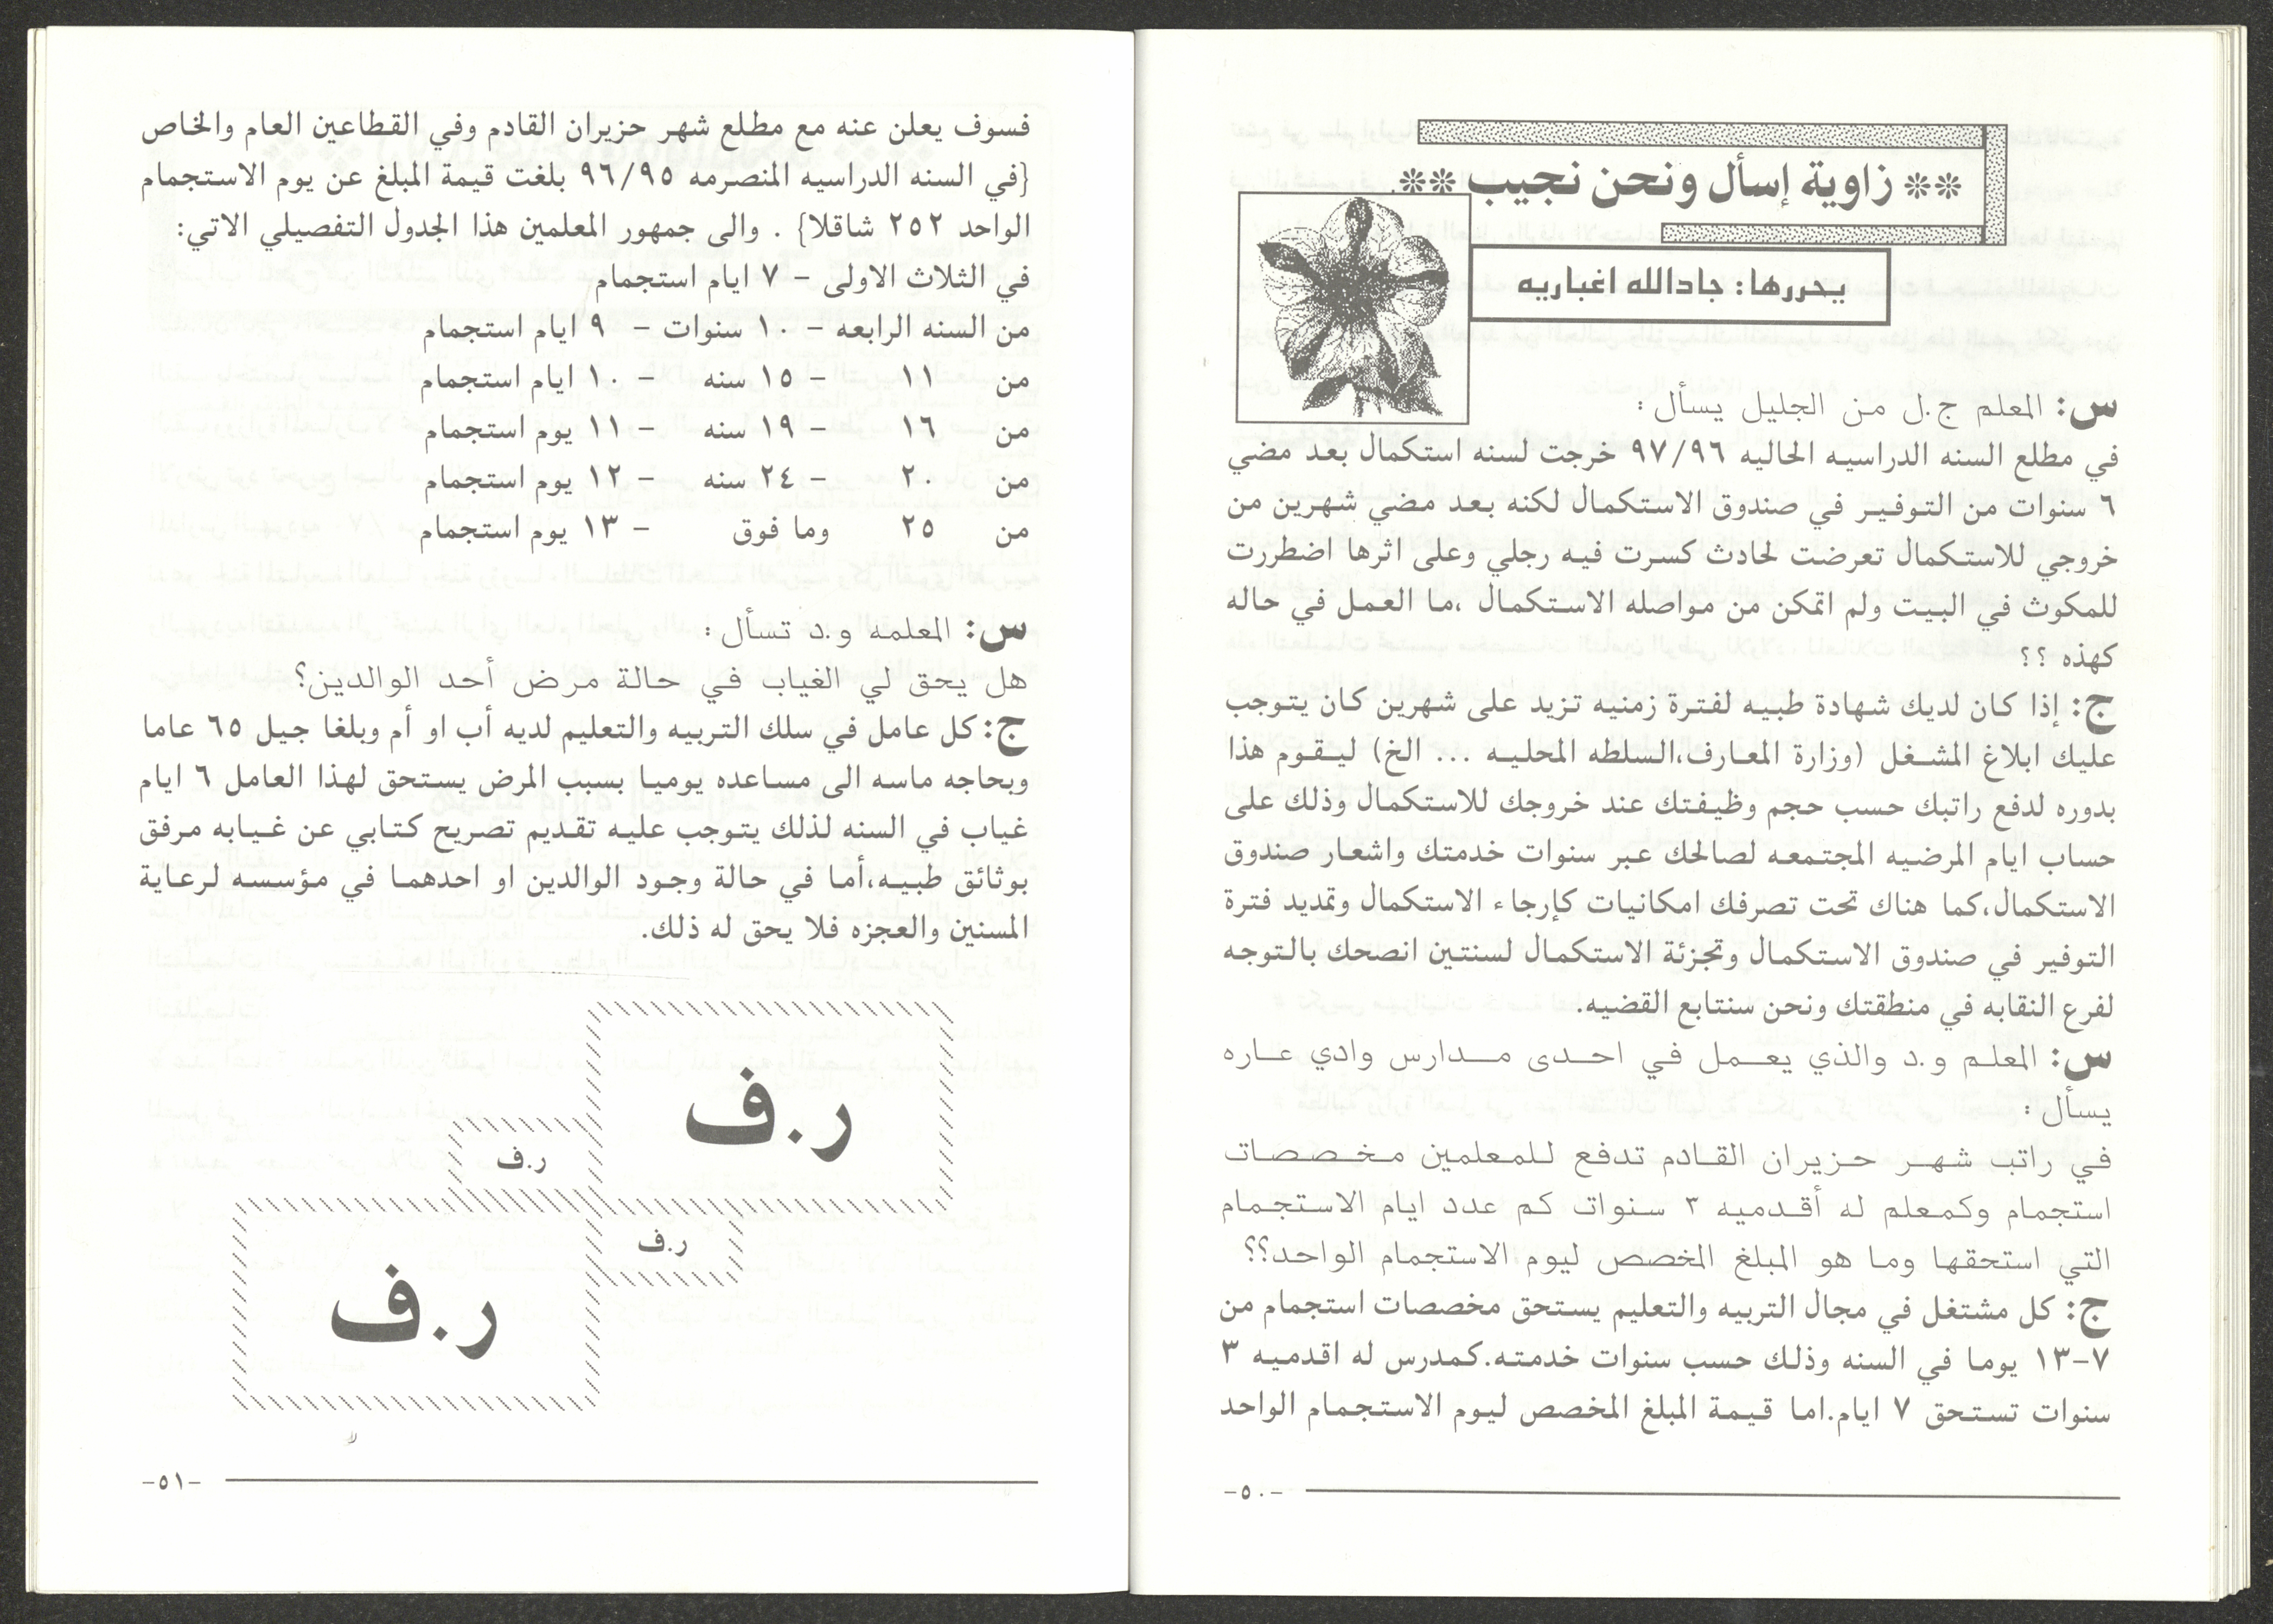 ** زاوية إسأل ونحن نجيب **
يحررها: جادالله اغباريه
س: المعلم ج.ل من الجليل يسأل :
في مطلع السنه الدراسيه الحاليه ٩٧/٩٦ خرجت لسنه استكمال بعد مضي
٦ سنوات من التوفير في صندوق الاستكمال لكنه بعد مضي شهرين من
خروجي للاستكمال تعرضت لحادث كسرت فيه رجلي وعلى اثرها اضطررت
للمكوث في البيت ولم اتمكن من مواصله الاستكمال ،ما العمل في حاله
كهذه ؟؟
ج: إذا كان لديك شهادة طبيه لفترة زمنيه تزيد على شهرين كان يتوجب
عليك ابلاغ المشغل (وزارة المعارف،السلطه المحليه ... الخ) ليقوم هذا
بدوره لدفع راتبك حسب حجم وظيفتك عند خروجك للاستكمال وذلك على
حساب ايام المرضيه المجتمعه لصالحك عبر سنوات خدمتك واشعار صندوق
الاستكمال،كما هناك تحت تصرفك امكانيات كإرجاء الاستكمال وتمديد فترة
التوفير في صندوق الاستكمال وتجزئة الاستكمال لسنتين انصحك بالتوجه
لفرع النقابه في منطقتك ونحن سنتابع القضيه.
س: المعلم و.د والذي يعمل في احدى مدارس وادي عاره
يسأل :
في راتب شهر حزيران القادم تدفع للمعلمين مخصصات
استجمام وكمعلم له أقدميه ٣ سنوات كم عدد ايام الاستجمام
التي استحقها وما هو المبلغ المخصص ليوم الاستجمام الواحد؟؟
ج: كل مشتغل في مجال التربيه والتعليم يستحق مخصصات استجمام من
٧-١٣ يوما في السنه وذلك حسب سنوات خدمته.كمدرس له اقدميه ٣
سنوات تستحق ٧ ايام.اما قيمة المبلغ المخصص ليوم الاستجمام الواحد
-٥٠-
فسوف يعلن عنه مع مطلع شهر حزيران القادم وفي القطاعين العام والخاص
{في السنه الدراسيه المنصرمه ٩٦/٩٥ بلغت قيمة المبلغ عن يوم الاستجمام
الواحد ٢٥٢ شاقلا} . والى جمهور المعلمين هذا الجدول التفصيلي الاتي:
في الثلاث الاولى - ٧ ايام استجمام
من السنه الرابعه - ١٠ سنوات - ٩ ايام استجمام
من ١١ - ١٥ سنه - ١٠ ايام استجمام
من ١٦ - ١٩ سنه - ١١ يوم استجمام
من ٢٠ - ٢٤ سنه - ١٢ يوم استجمام
من ٢٥ وما فوق - ١٣ يوم استجمام
س: المعلمه و.د تسأل :
هل يحق لي الغياب في حالة مرض أحد الوالدين؟
ج: كل عامل في سلك التربيه والتعليم لديه أب او أم وبلغا جيل ٦٥ عاما
وبحاجه ماسه الى مساعده يوميا بسبب المرض يستحق لهذا العامل ٦ ايام
غياب في السنه لذلك يتوجب عليه تقديم تصريح كتابي عن غيابه مرفق
بوثائق طبيه،أما في حالة وجود الوالدين او احدهما في مؤسسه لرعاية
المسنين والعجزه فلا يحق له ذلك.
ر.ف
ر.ف
ر.ف
ر.ف
-٥١-